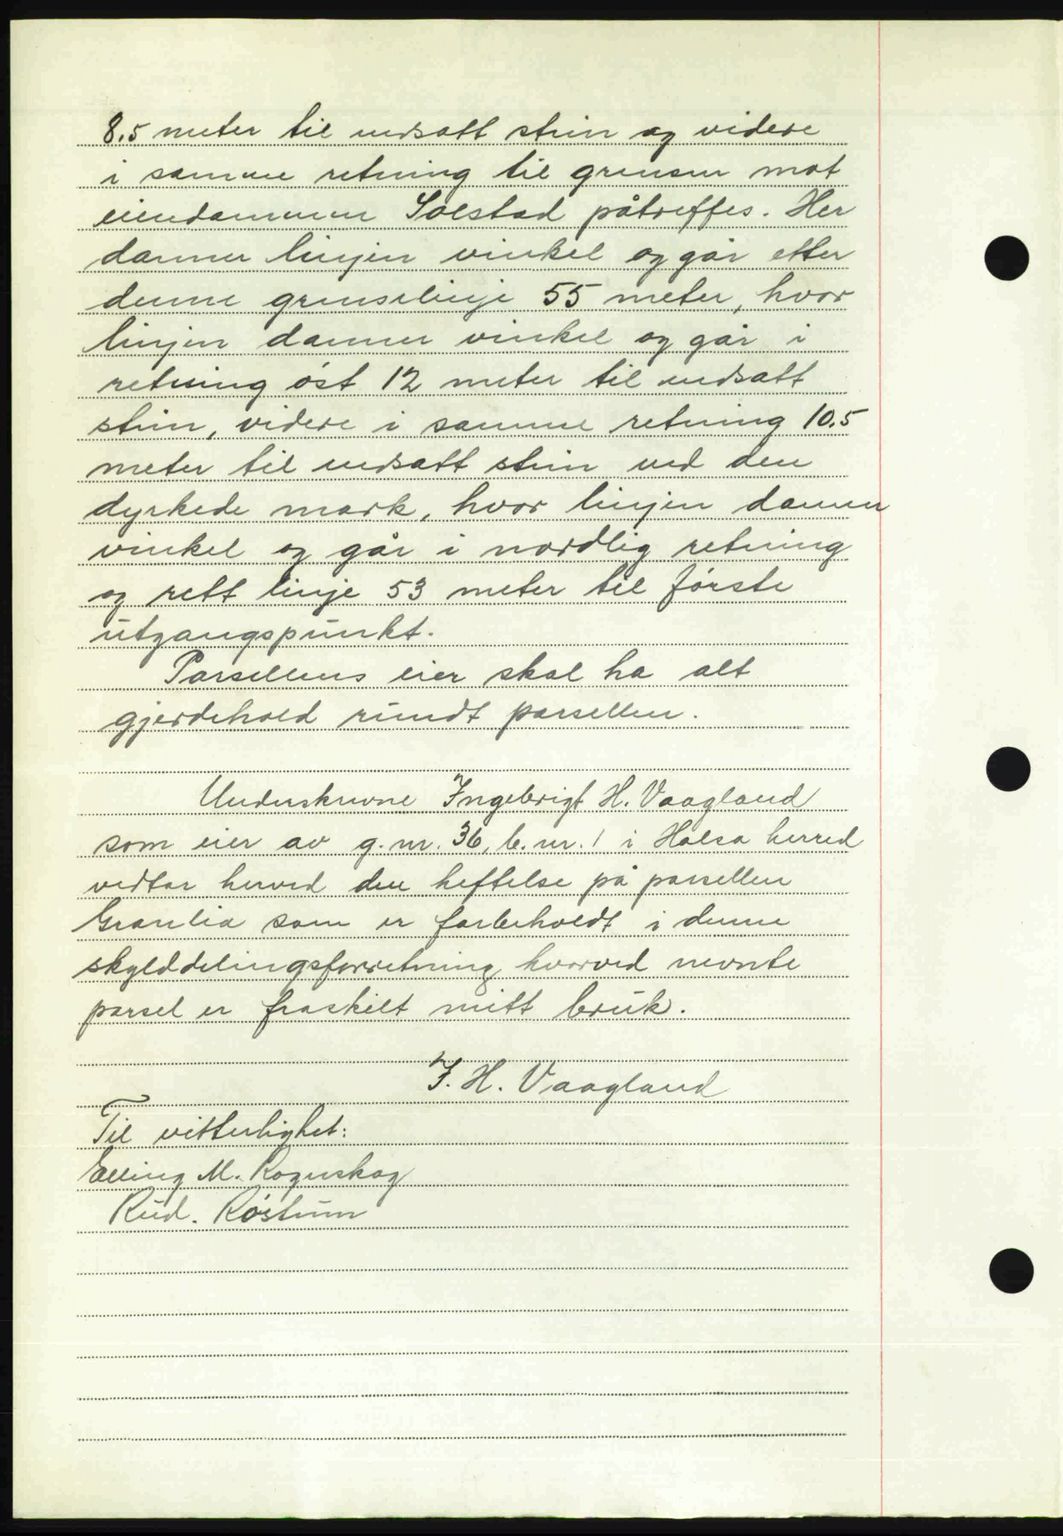 8.5 meter til nedsatt stein og videre
i samme retning til grensen mot
eiendommen Solstad påtreffes. Her
danner linjen vinkel og går etter
denne grenselinje 55 meter, hvor
linjen danner vinkel og går i
retning øst 12 meter til nedsatt
stein, videre i samme retning 10.5
meter til nedsatt stein ved den
dyrkede mark, hvor linjen danner
vinkel og går i nordlig retning
og rett linje 53 meter til første
utgangspunkt.
Parsellens eier skal ha alt
gjerdehold rundt parsellen.
Underskrevne Ingebrigt H. Vaagland
som eier av g.nr. 36, b.nr. 1 i Halsa herred
vedtar herved den heftelse på parsellen
Granlia som er forbeholdt i denne
skylddelingsforretning, hvorved nevnte
parsel er fraskilt mitt bruk.
I. H. Vaagland
Til vitterlighet:
Elling M. Rognskog
Rud. Røstum